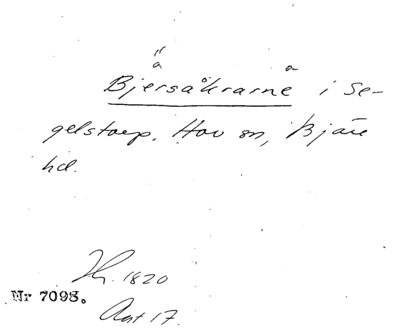 ä
a a
Bjersåkrarne i Se-
gelstorp. Hov sn, Bjäre
hd.
1820
Nr 7098.
Akt 17.